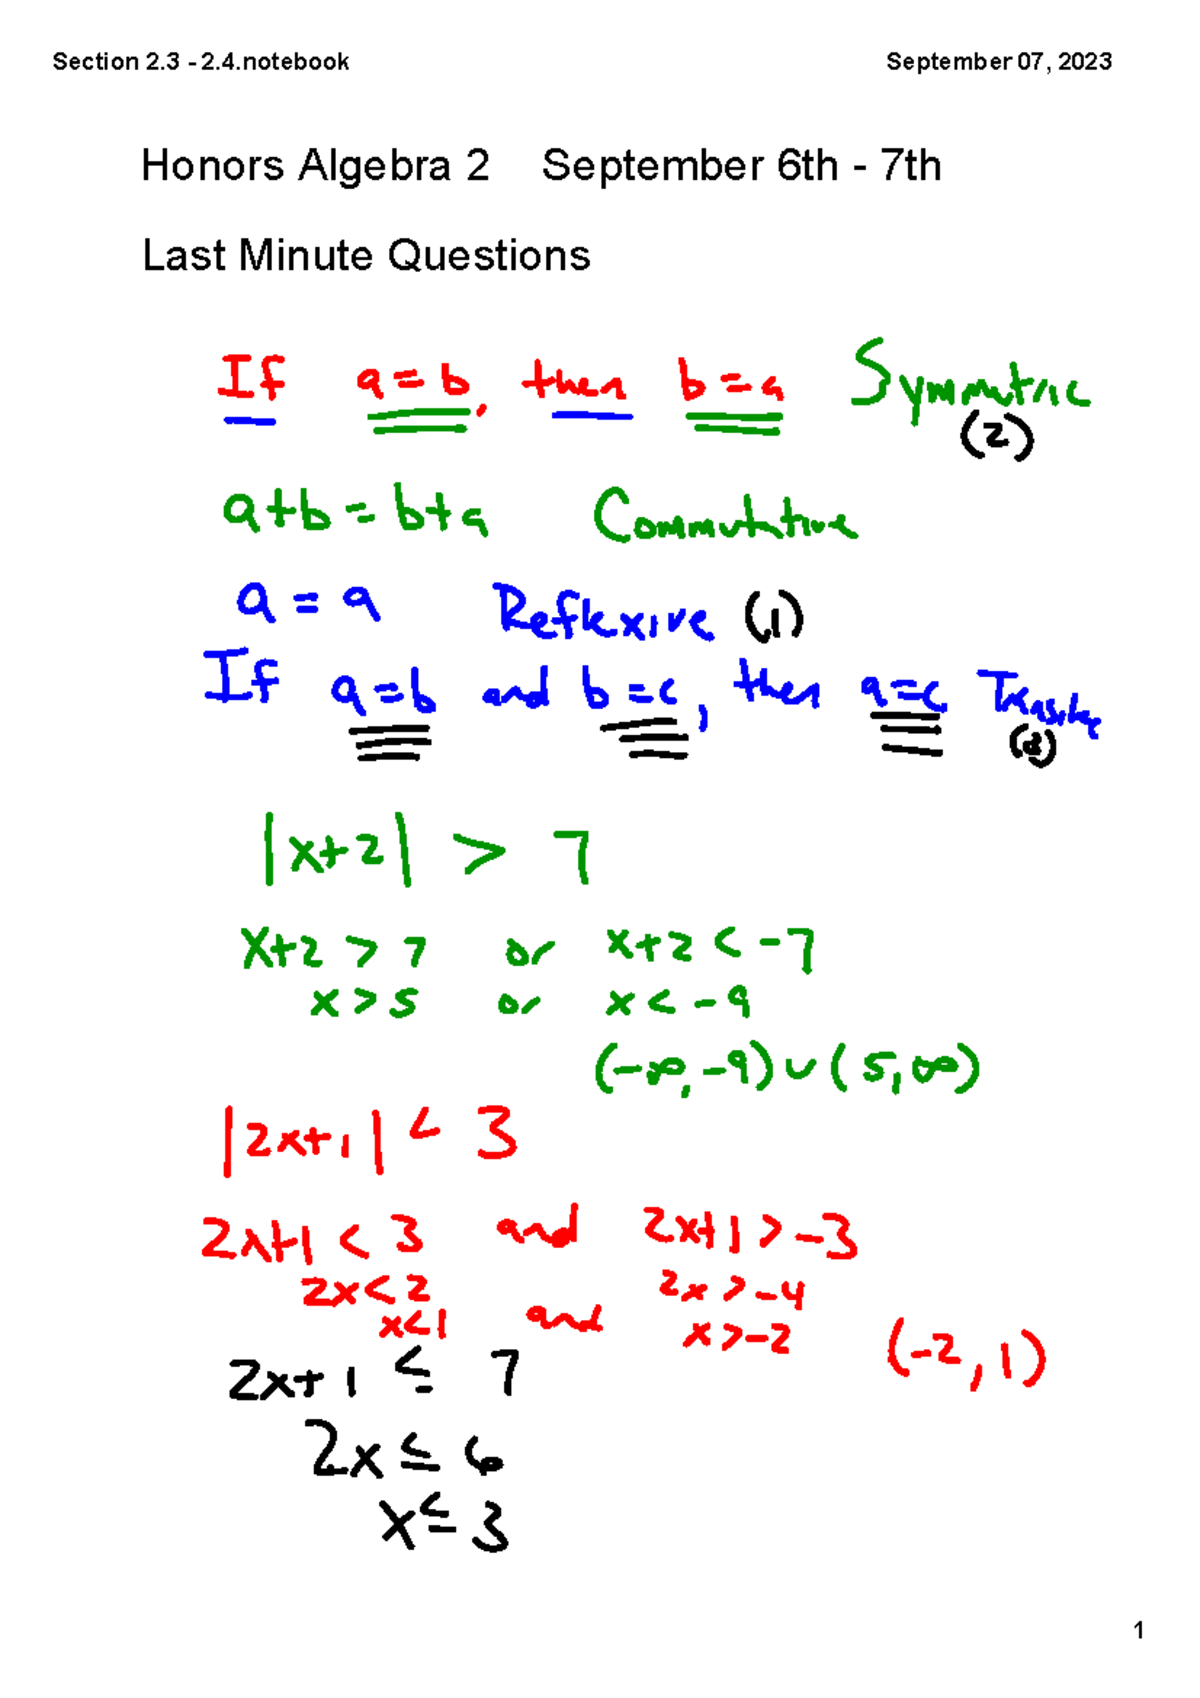 Section 2.3 - 2.4.notebook September 07, 2023
Honors Algebra 2 September 6th - 7th
Last Minute Questions
If a = b, then b = a Symmetric
(2)
a+b = b+a Commutative
a = a Reflexive (1)
If a = b and b = c, then a = c Transitive
(3)
|x+2| > 7
x+2 > 7 or x+2 < -7
x > 5 or x < -9
(-∞, -9) ∪ (5, ∞)
|2x+1| < 3
2x+1 < 3 and 2x+1 > -3
2x < 2 2x > -4
x < 1 and x > -2 (-2, 1)
2x+1 ≤ 7
2x ≤ 6
x ≤ 3
1